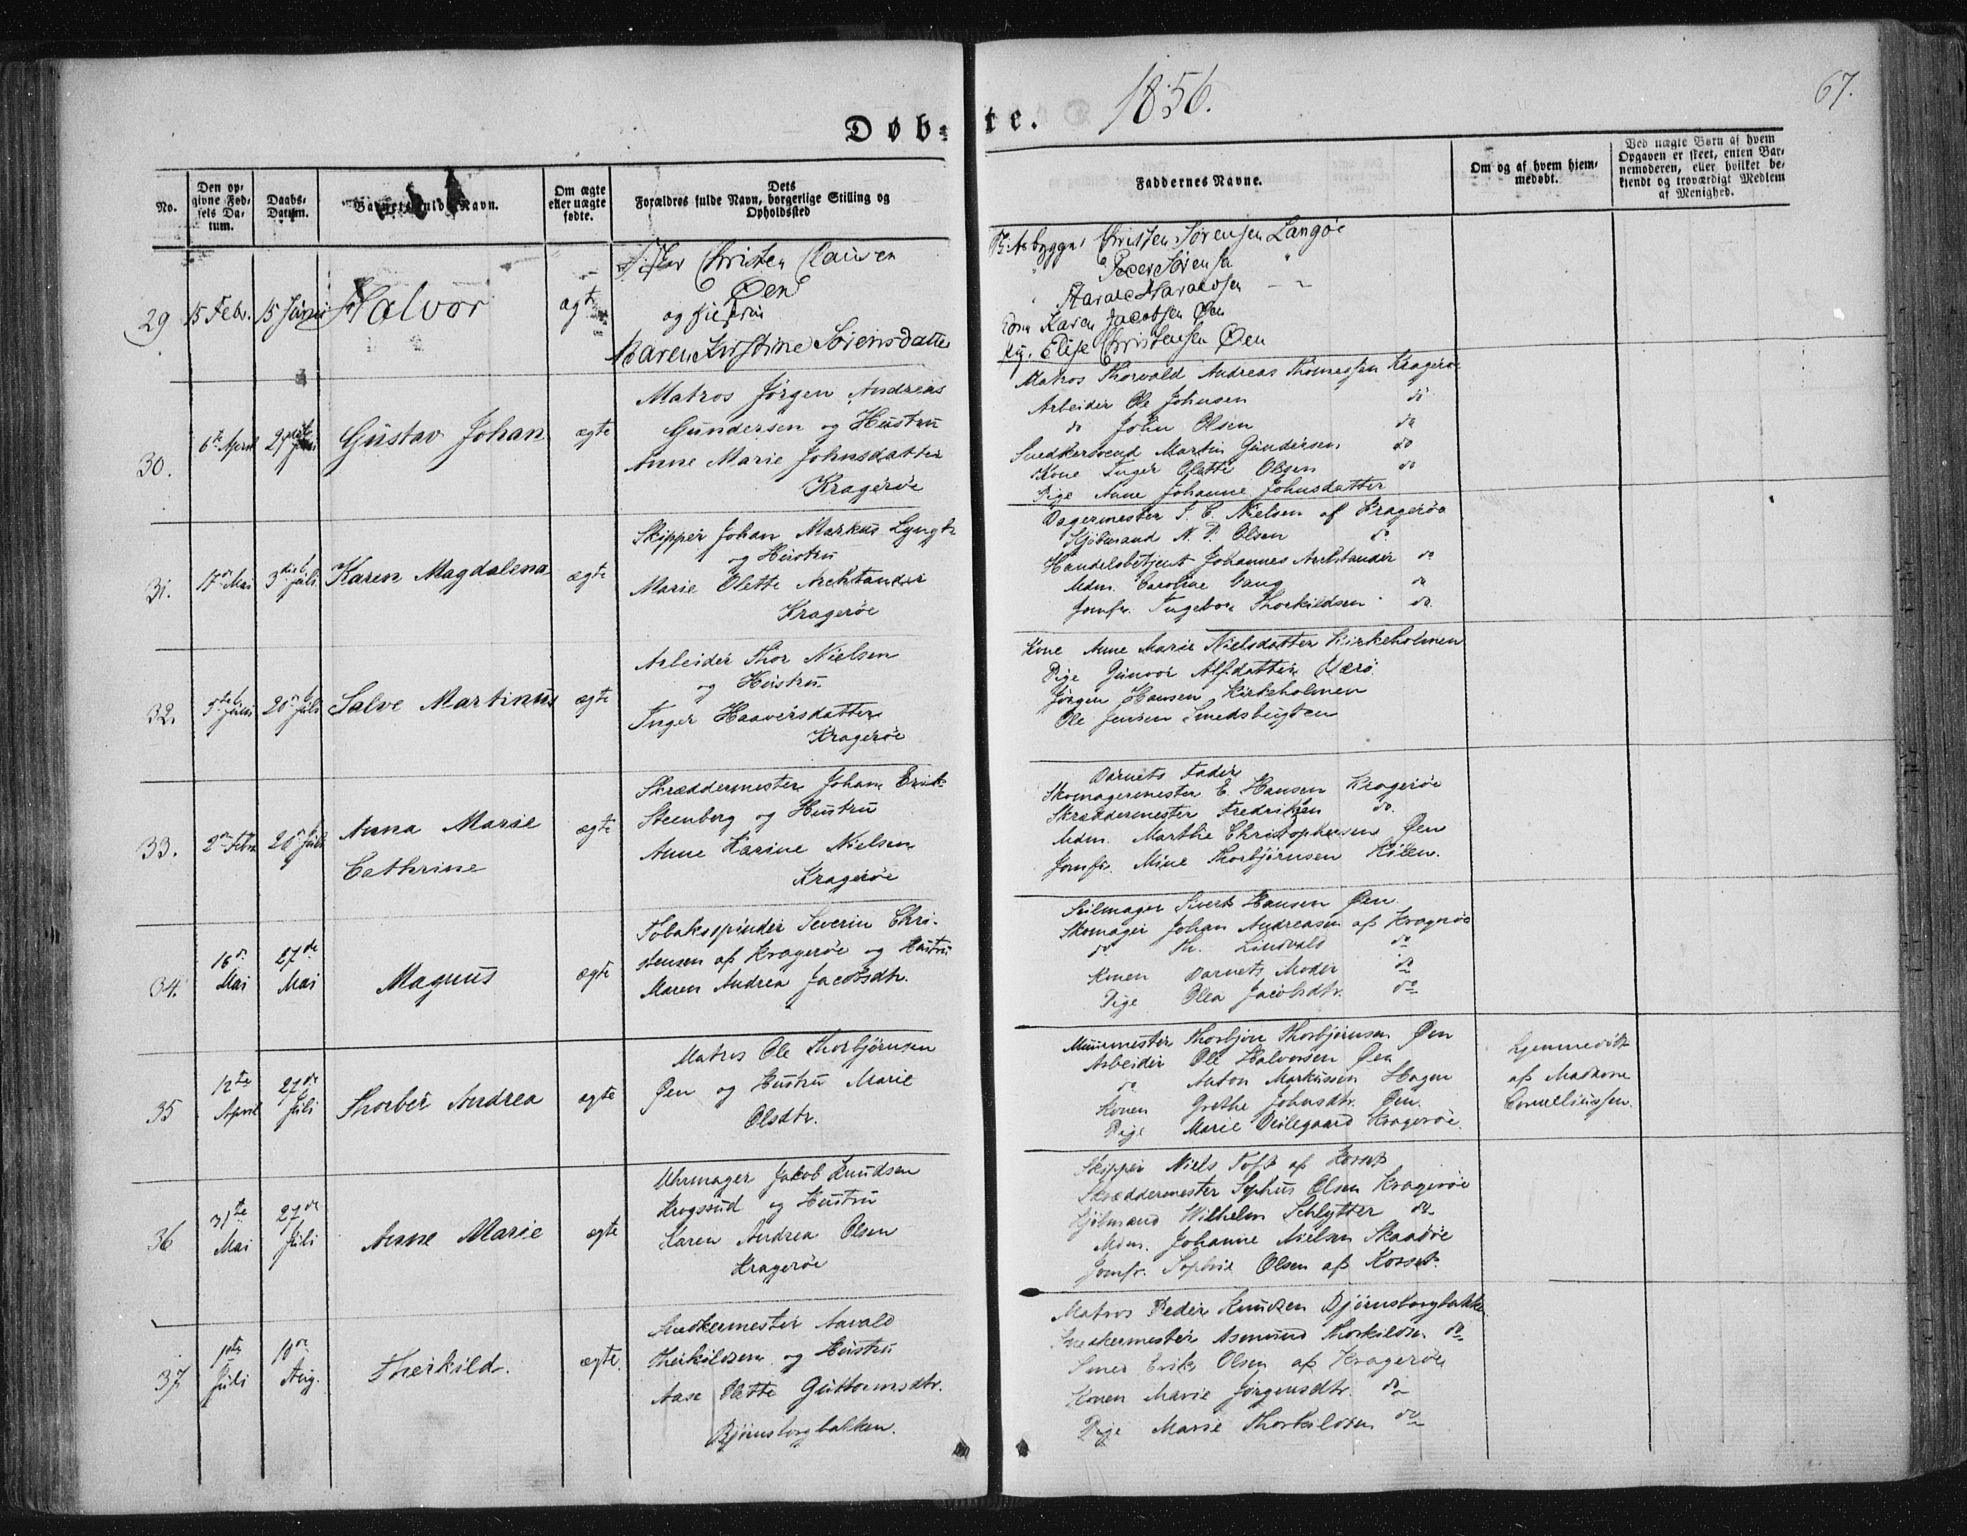 1856.
67.
Døb-te.
No.
Den op-
givne Fød-
sels Da-
tum.
Daabs-
Datum.
Barnets fulde Navn.
Om ægte
eller uægte
fødte.
Dets
Forældres fulde Navn, borgerlige Stilling og
Opholdsted
Faddernes Navne.
Om og af hvem hjem-
medøbt.
Ved uægte Børn af hvem
Opgaven er skeet, enten Bar-
nemoderen, eller hvilket be-
kiendt og troværdigt Medlem
af Menighed.
29
15 Febr.
15 Juni
Halvor
ægte
Christen Clausen
Øen
og
Maren Kirstine Sørensdatter
Christen Sørensen Langøe
Peder Sørensen
Harald Haraldsen
Kone Karen Jacobsen Øen
Elise Christensen Øen
30.
6te April
29de Juni
Gustav Johan
ægte
Matros Jørgen Andreas
Gundersen og Hustru
Anne Marie Johnsdatter
Kragerøe
Matros Thorvald Andreas Thomassen Kragerøe
Arbeider Ole Johnsen do
do John Olsen do
Snedkersvend Martin Gundersen do
Kone Inger Olette Olsen do
Pige Anne Johanne Johnsdatter
31.
17de Mai
3die Juli
Karen Magdalena
ægte
Skipper Johan Markus Lyngt
og Hustru
Marie Olette Arektander
Kragerøe
Bagermester Nielsen af Kragerøe
Kjøbmand N. P. Olsen do
Handelsbetjent Johannes Arektander do
Mdm. Caroline Gang do
Jomfr. Ingebor Thorkildsen do.
32.
5te Juni
20de Juli
Salve Martinus
ægte
Arbeider Thor Nielsen
og Hustru
Inger Haaversdatter
Kragerøe
Kone Anne Marie Nielsdatter Kirkeholmen
Pige Gunvor Alfsdatter
Jørgen Hansen Kirkeholmen
Ole Jensen Smedsbugten
33.
2den Febr
20de Juli
Anna Marie
Cathrine
ægte
Skræddermester Johan Erik
Steenberg og Hustru
Anne Karine Nielsen
Kragerøe
Barnets Fader
Skomagermester E. Hansen Kragerøe
Skræddermester Fredriksen do.
Mdm. Marthe Christophersen Øen
Jomfr. Mine Thorbjørnsen Kilen.
34.
16de
Mai
27de
Mai
Magnus
ægte
Tobakspinder Severin Chri-
stensen af Kragerøe og Hustru
Maren Andrea Jacobsdtr.
Seilmager Sivert Hansen Øen
Skomager Johan Andreasen af Kragerøe
do Th. Lindvald do
Konen Barnets Moder do
Pige Olea Jacobsdtr. do
35
12te
April
27de
Juli
Thorber Andrea
ægte
Matros Ole Thorbjørnsen
Øen og Hustru Marie
Olsdtr.
Murmester Thorbjørn Thorbjørnsen Øen
Arbeider Ole Halvorsen Øen
do Anton Markussen Hagen
Konen Grethe Johnsdtr. Øen.
Pige Marie Kragerøe.
hjemmedøbt
af Madkone
Corneliussen.
36
31te
Mai
27de
Juli
Anne Marie
ægte
Uhrmager Jakob Knudsen
Krogssud og Hustru
Karen Andrea Olsen
Kragerøe
Skipper Niels Toft af Korset
Skræddermester Sophus Olsen Kragerøe
Kjøbmand Wilhelm Schlytter do
Mdm. Johanne Nielsen Skaadøe
Jomfr. Sophie Olsen af Korset.
37
1ste
Juli
10de
Aug.
Therkild.
ægte.
Snedkermester Aavald
Therkildsen og Hustru
Aase Olette Guttormsdtr.
Bjørnsborgbakken.
Matros Peder Knudsen Bjørnsborgbakke
Snedkermester Asmund Thorkildsen do
Smed Erik Olsen af Kragerøe
Konen Marie Jørgensdtr. do
Pige Marie Thorkildsen do